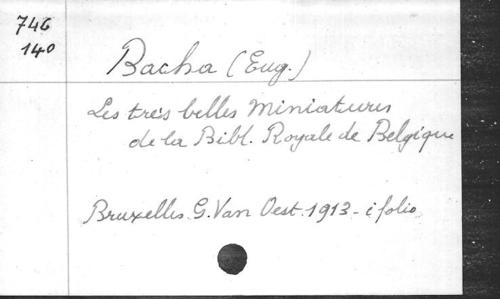 746
140
Bacha (Eug.)
Les très belles Miniatures
de la Bibl. Royale de Belgique
Bruxelles. G. Van Oest. 1913 - i folio